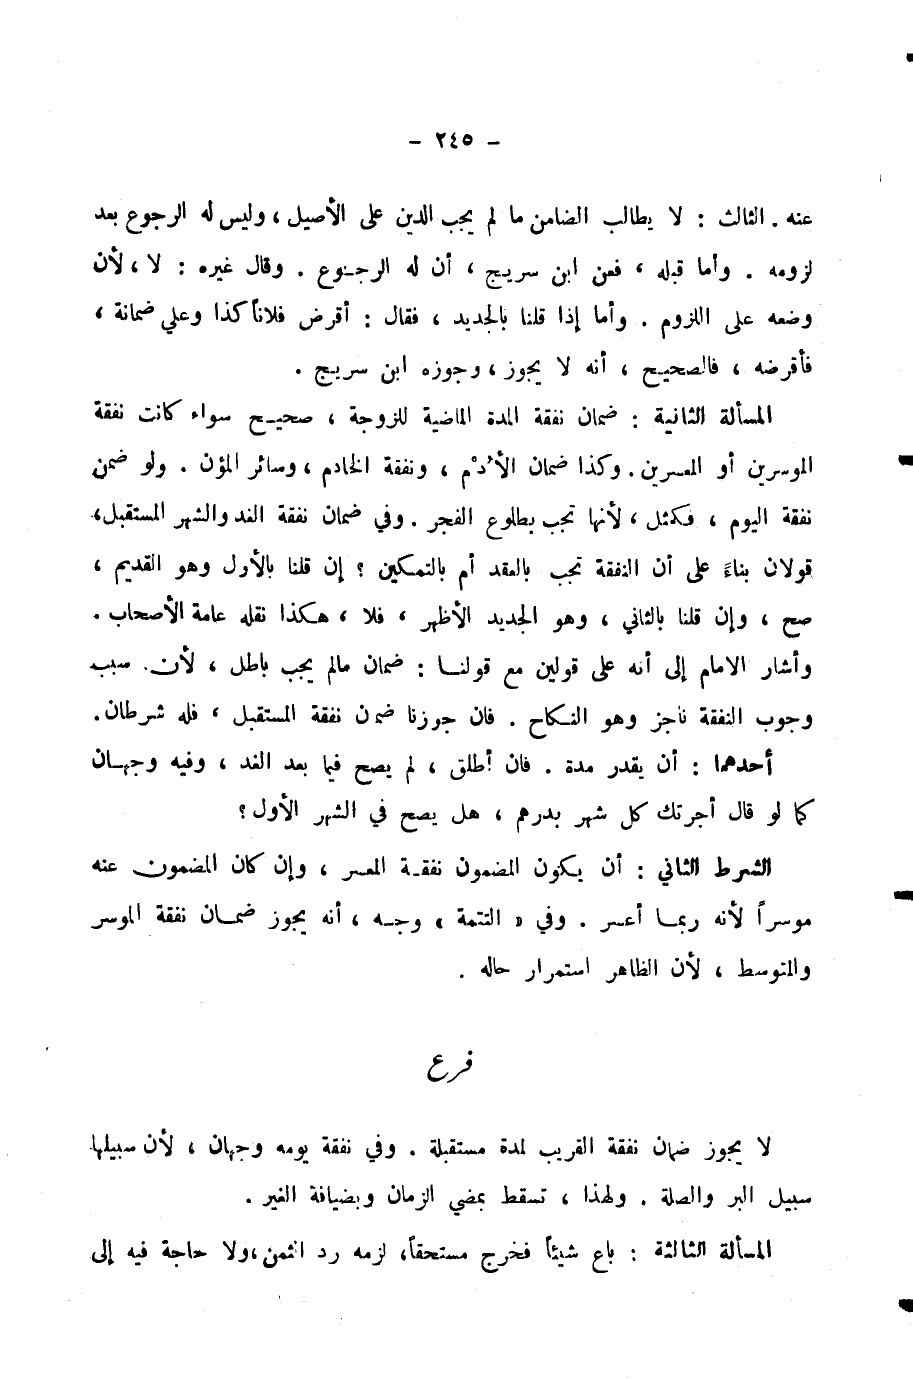 - ٢٤٥ -
عنه . الثالث : لا يطالب الضامن ما لم يجب الدين على الأصيل ، وليس له الرجوع بعد
لزومه . وأما قبله ، فعن ابن سريج ، أن له الرجوع . وقال غيره : لا ، لأن
وضعه على اللزوم . وأما إذا قلنا بالجديد ، فقال : أقرض فلاناً كذا وعلي ضمانة ،
فأقرضه ، فالصحيح ، أنه لا يجوز ، وجوزه ابن سريج .
المسألة الثانية : ضمان نفقة المدة الماضية للزوجة ، صحيح سواء كانت نفقة
الموسرين أو المعسرين . وكذا ضمان الأُدْم ، ونفقة الخادم ، وسائر المؤن . ولو ضمن
نفقة اليوم ، فكمثل ، لأنها تجب بطلوع الفجر . وفي ضمان نفقة الغد والشهر المستقبل ،
قولان بناءً على أن النفقة تجب بالعقد أم بالتمكين ؟ إن قلنا بالأول وهو القديم ،
صح ، وإن قلنا بالثاني ، وهو الجديد الأظهر ، فلا ، هكذا نقله عامة الأصحاب .
وأشار الامام إلى أنه على قولين مع قولنا : ضمان مالم يجب باطل ، لأن سبب
وجوب النفقة ناجز وهو النكاح . فان جوزنا ضمن نفقة المستقبل ، فله شرطان .
أحدهما : أن يقدر مدة . فان أطلق ، لم يصح فيما بعد الغد ، وفيه وجهان
كما لو قال أجرتك كل شهر بدرهم ، هل يصح في الشهر الأول ؟
الشرط الثاني : أن يكون المضمون نفقة المعسر ، وإن كان المضمون عنه
موسراً لأنه ربما أعسر . وفي « التتمة » وجه ، أنه يجوز ضمان نفقة الموسر
والمتوسط ، لأن الظاهر استمرار حاله .
فرع
لا يجوز ضمان نفقة القريب لمدة مستقبلة . وفي نفقة يومه وجهان ، لأن سبيلها
سبيل البر والصلة . ولهذا ، تسقط بمضي الزمان وبضيافة الغير .
المسألة الثالثة : باع شيئاً فخرج مستحقاً ، لزمه رد الثمن ، ولا حاجة فيه إلى